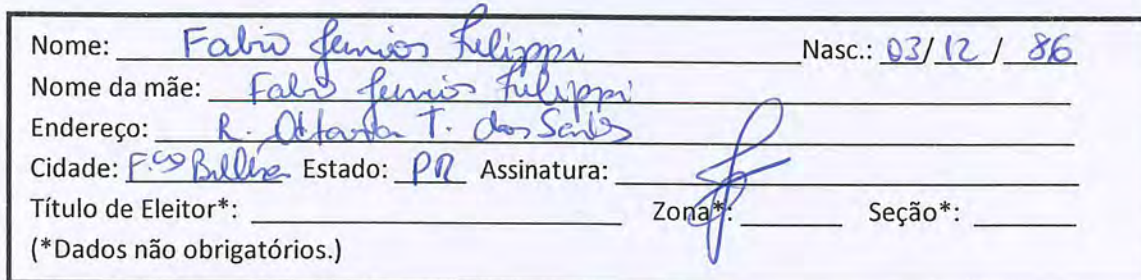 Nome: Fabio Junior Filippi Nasc.: 03/12/86
Nome da mãe: Fabio Junior Filippi
Endereço: R. T. dos Santos
Cidade: F.co Estado: PR Assinatura:
Título de Eleitor*: Zona*: Seção*:
(*Dados não obrigatórios.)